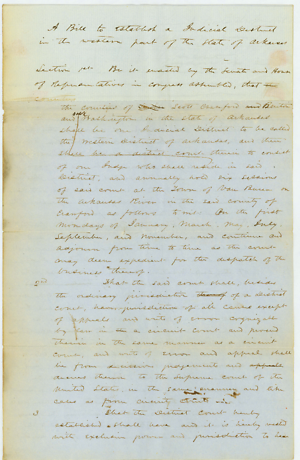 A Bill to establish a Judicial District
in the western part of the State of Arkansas
Section 1st Be it enacted by the Senate and House
of Representatives in Congress assembled, that
the counties of Scott Crawford and Benton
and Washington in the State of Arkansas
shall be one Judicial District to be called
the Western District of Arkansas, and there
shall be a district court therein to consist
of one Judge who shall reside in said
District, and annually hold six sessions
of said court at the Town of Van Buren on
the Arkansas River in the said county of
Crawford as follows to wit: On the first
Mondays of January, March, May, July
September, and November, and continue and
adjourn from time to time as the court
may deem expedient for the dispatch of the
business thereof.
2d That the said court shall, besides
the ordinary jurisdiction of a District
court, have jurisdiction of all cases except
of appeals and writs of error cognizable
by law in a circuit court and proceed
therein in the same manner as a circuit
court, and writs of error and appeal shall
lie from decisions judgements and
decrees therein to the supreme court of the
United States, in the same manner and like
cases as from circuit courts
3 That the District Court hereby
established shall have and it is hereby vested
with exclusive power and jurisdiction to